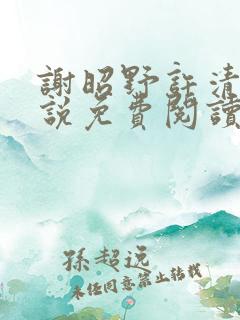 謝昭野許清
說免費閱讀
孫超远
未经同意禁止转载